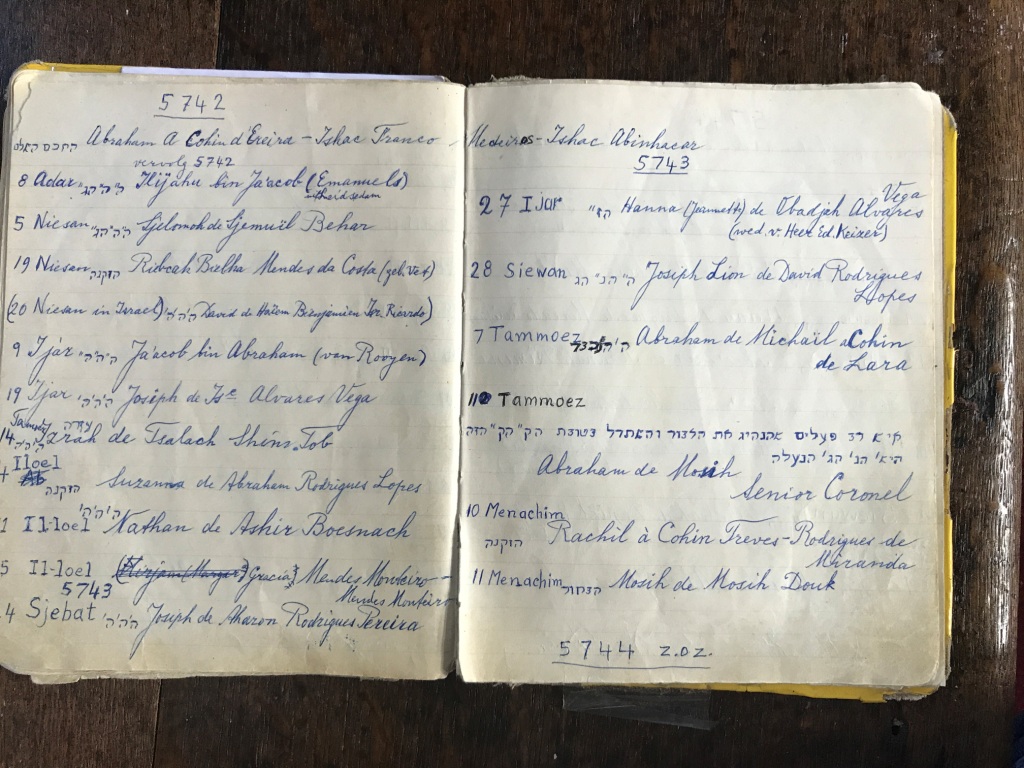 5742
Abraham A Cohin d'Ereira - Ishac Franco
vervolg 5742
8 Adar Ilijahu bin Ja'acob (Emanuels)
5 Niesan Sjelomoh de Sjemuïl Behar
19 Niesan הזקנה Ribcah Bielha Mendes da Costa (geb. Vet)
(20 Niesan in Israel) David de Haïem Bienjamien
9 Ijar Ja'acob bin Abraham (van Rooyen)
19 Ijar Joseph de Is^c Alvares Vega
Tamoez
14 Sarah de Tsalach Shems Tob
Iloel
הזקנה Suzanna de Abraham Rodrigues Lopes
1 Il-loel Nathan de Ashir Boesnach
5 Il-loel Gracia Mendes Monteiro -
Mendes Monteiro
5743
4 Sjebat Joseph de Aharon Rodrigues Pereira
Medeiros - Ishac Abinhacar
5743
27 Ijar Hanna (Jeannette) de Obadjah Alvares Vega
(wed. v. Heer Ed. Keizer)
28 Siewan Joseph Lion de David Rodrigues
Lopes
7 Tammoez Abraham de Michaïl a Cohin
de Lara
11 Tammoez
איש רב פעלים
הנעלה
Abraham de Mosih
Senior Coronel
10 Menachim
הזקנה Rachil à Cohin Treves-Rodrigues de
Miranda
11 Menachim הבחור Mosih de Mosih Douk
5744 z.o.z.